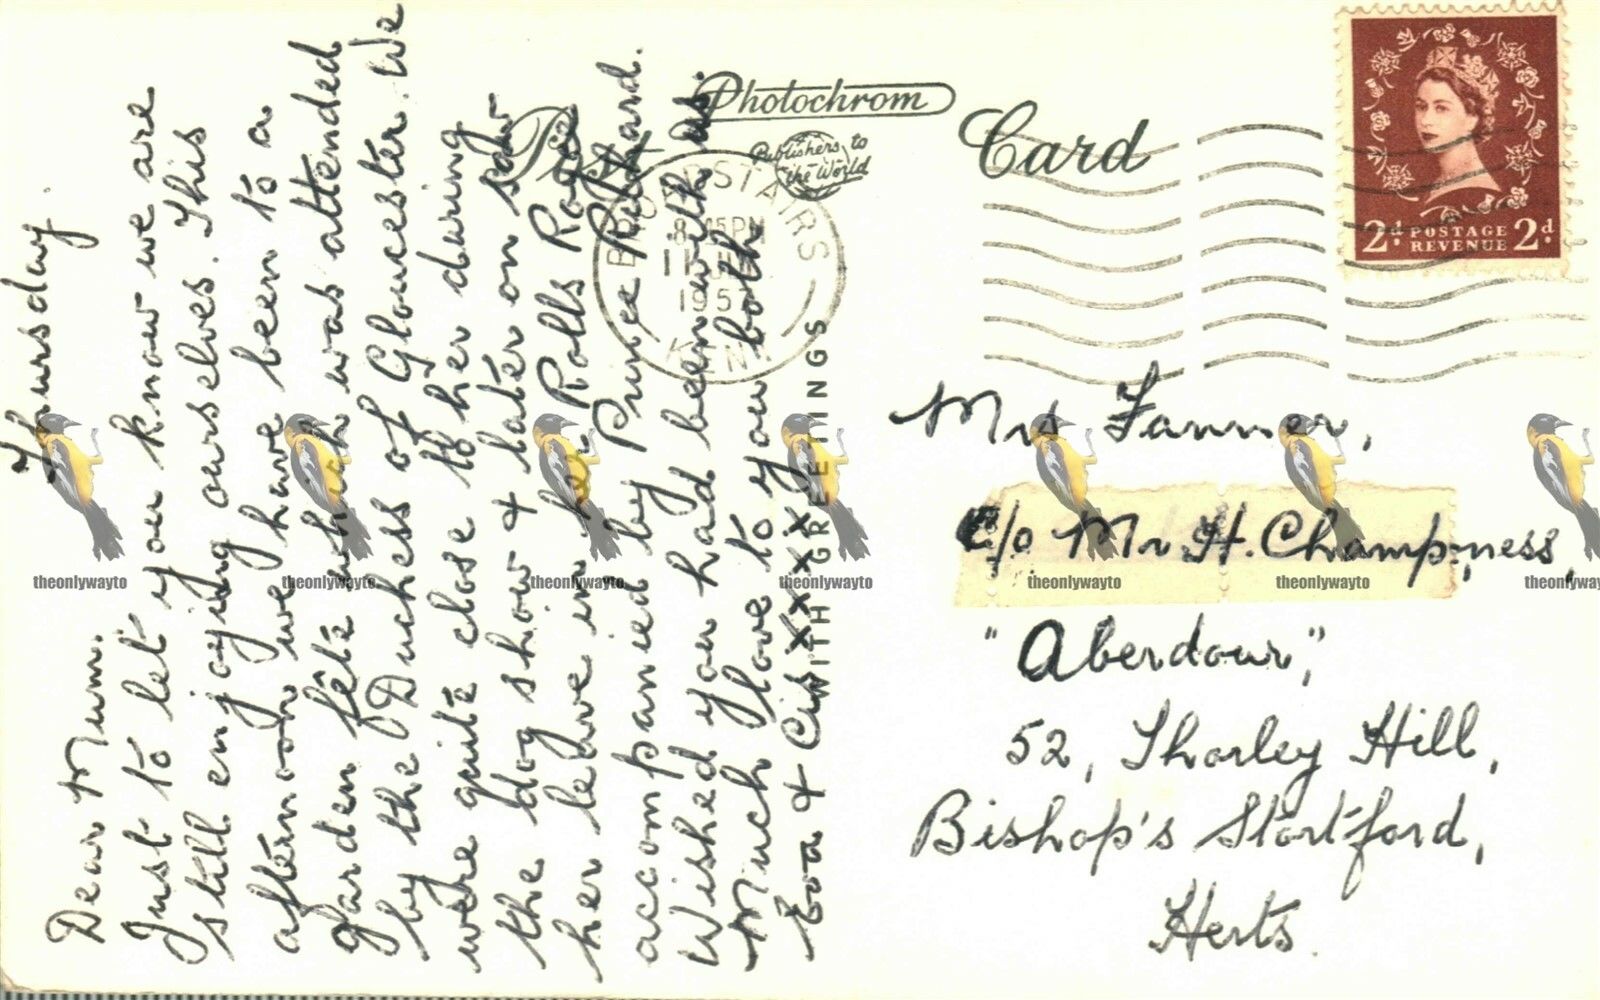 Post Card
Photochrom
Publishers to
the World
BROADSTAIRS
8.45 PM
11
1957
KENT
2d POSTAGE REVENUE 2d
Thursday.
Dear Mum.
Just to let you know we are
still enjoying ourselves. This
afternoon we have been to a
garden fête which was attended
by the Duchess of Gloucester. We
were quite close to her during
the dog show & later on saw
her leave in her Rolls Royce
accompanied by Prince Richard.
Wished you had been with us.
Much love to you both
& Cis xxxx
WITH GREETINGS
Mrs Fanner,
C/o Mr H. Champness,
"Aberdour",
52, Thorley Hill,
Bishop's Stortford,
Herts.
theonlywayto theonlywayto theonlywayto theonlywayto theonlywayto theonlywayto theonlywayto